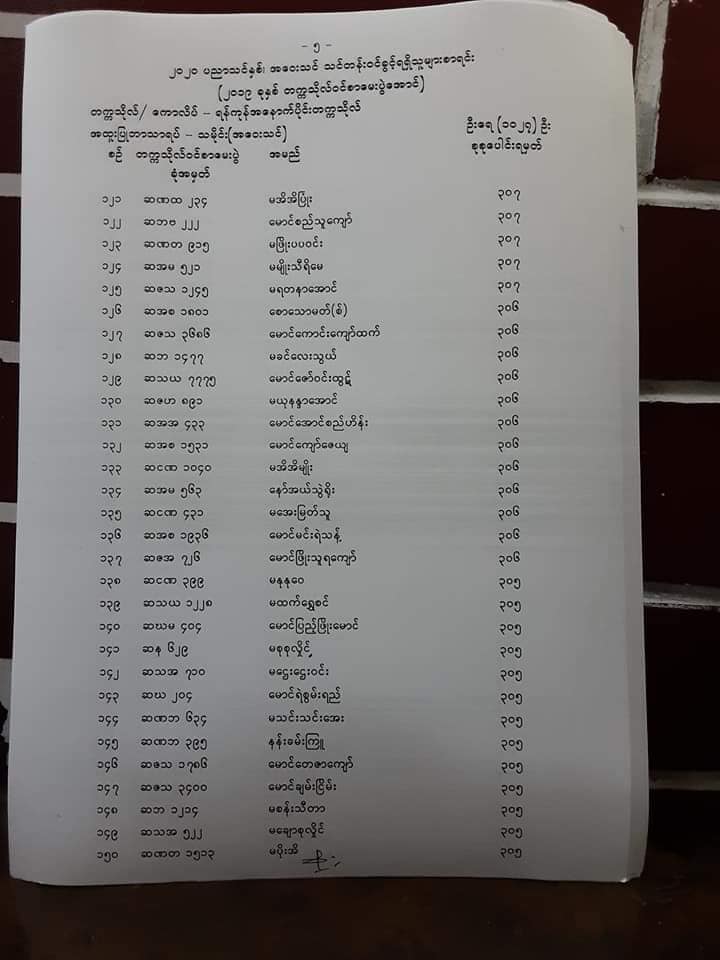 - ၅ -
၂၀၂၀ ပညာသင်နှစ်၊ အဝေးသင် သင်တန်းဝင်ခွင့်ရရှိသူများစာရင်း
(၂၀၁၉ ခုနှစ် တက္ကသိုလ်ဝင်စာမေးပွဲအောင်)
တက္ကသိုလ်/ ကောလိပ် – ရန်ကုန်အနောက်ပိုင်းတက္ကသိုလ်
အထူးပြုဘာသာရပ် – သမိုင်း(အဝေးသင်) ဦးရေ (၁၀၂၇) ဦး
စဉ် တက္ကသိုလ်ဝင်စာမေးပွဲ အမည် စုစုပေါင်းရမှတ်
ခုံအမှတ်
၁၂၁ ဆဏထ ၂၃၄ မအိအိပြုံး ၃၀၇
၁၂၂ ဆဘဗ ၂၂၂ မောင်စည်သူကျော် ၃၀၇
၁၂၃ ဆဏတ ၉၁၅ မဖြိုးပပဝင်း ၃၀၇
၁၂၄ ဆအမ ၅၂၁ မမျိုးသီရိမေ ၃၀၇
၁၂၅ ဆဇသ ၁၂၄၅ မရတနာအောင် ၃၀၇
၁၂၆ ဆအစ ၁၈၀၁ စောသောမတ်(စ်) ၃၀၆
၁၂၇ ဆဇသ ၃၆၈၆ မောင်ကောင်းကျော်ထက် ၃၀၆
၁၂၈ ဆဘ ၁၄၇၇ မခင်လေးသွယ် ၃၀၆
၁၂၉ ဆသယ ၇၇၇၅ မောင်ဇော်ဝင်းထွဋ် ၃၀၆
၁၃၀ ဆဇဟ ၈၉၁ မယုနန္ဒာအောင် ၃၀၆
၁၃၁ ဆအအ ၄၃၃ မောင်အောင်စည်ဟိန်း ၃၀၆
၁၃၂ ဆအစ ၁၅၃၁ မောင်ကျော်ဇေယျ ၃၀၆
၁၃၃ ဆငဏ ၁၀၄၀ မအိအိမျိုး ၃၀၆
၁၃၄ ဆအမ ၅၆၃ နော်အယ်သွဲရိုး ၃၀၆
၁၃၅ ဆငဏ ၄၃၁ မအေးမြတ်သူ ၃၀၆
၁၃၆ ဆအစ ၁၉၃၆ မောင်မင်းရဲသန့် ၃၀၆
၁၃၇ ဆဇအ ၇၂၆ မောင်ဖြိုးသူရကျော် ၃၀၆
၁၃၈ ဆငဏ ၃၉၉ မနုနုဝေ ၃၀၅
၁၃၉ ဆသယ ၁၂၂၈ မထက်ရွှေစင် ၃၀၅
၁၄၀ ဆဃမ ၄၀၄ မောင်ပြည့်ဖြိုးမောင် ၃၀၅
၁၄၁ ဆန ၆၂၉ မစုစုလှိုင့် ၃၀၅
၁၄၂ ဆသအ ၇၁၀ မဌေးဌေးဝင်း ၃၀၅
၁၄၃ ဆဃ ၂၀၄ မောင်ရဲစွမ်းရည် ၃၀၅
၁၄၄ ဆဏဘ ၆၃၄ မသင်းသင်းအေး ၃၀၅
၁၄၅ ဆဏဘ ၃၉၅ နန်းခမ်းကြူ ၃၀၅
၁၄၆ ဆဇသ ၁၇၈၆ မောင်တေဇာကျော် ၃၀၅
၁၄၇ ဆဇသ ၃၄၀၀ မောင်ချမ်းငြိမ်း ၃၀၅
၁၄၈ ဆဘ ၁၂၁၄ မစန်းသီတာ ၃၀၅
၁၄၉ ဆသအ ၅၂၂ မချောစုလှိုင် ၃၀၅
၁၅၀ ဆဏတ ၁၅၁၃ မပိုးအိ ၃၀၅